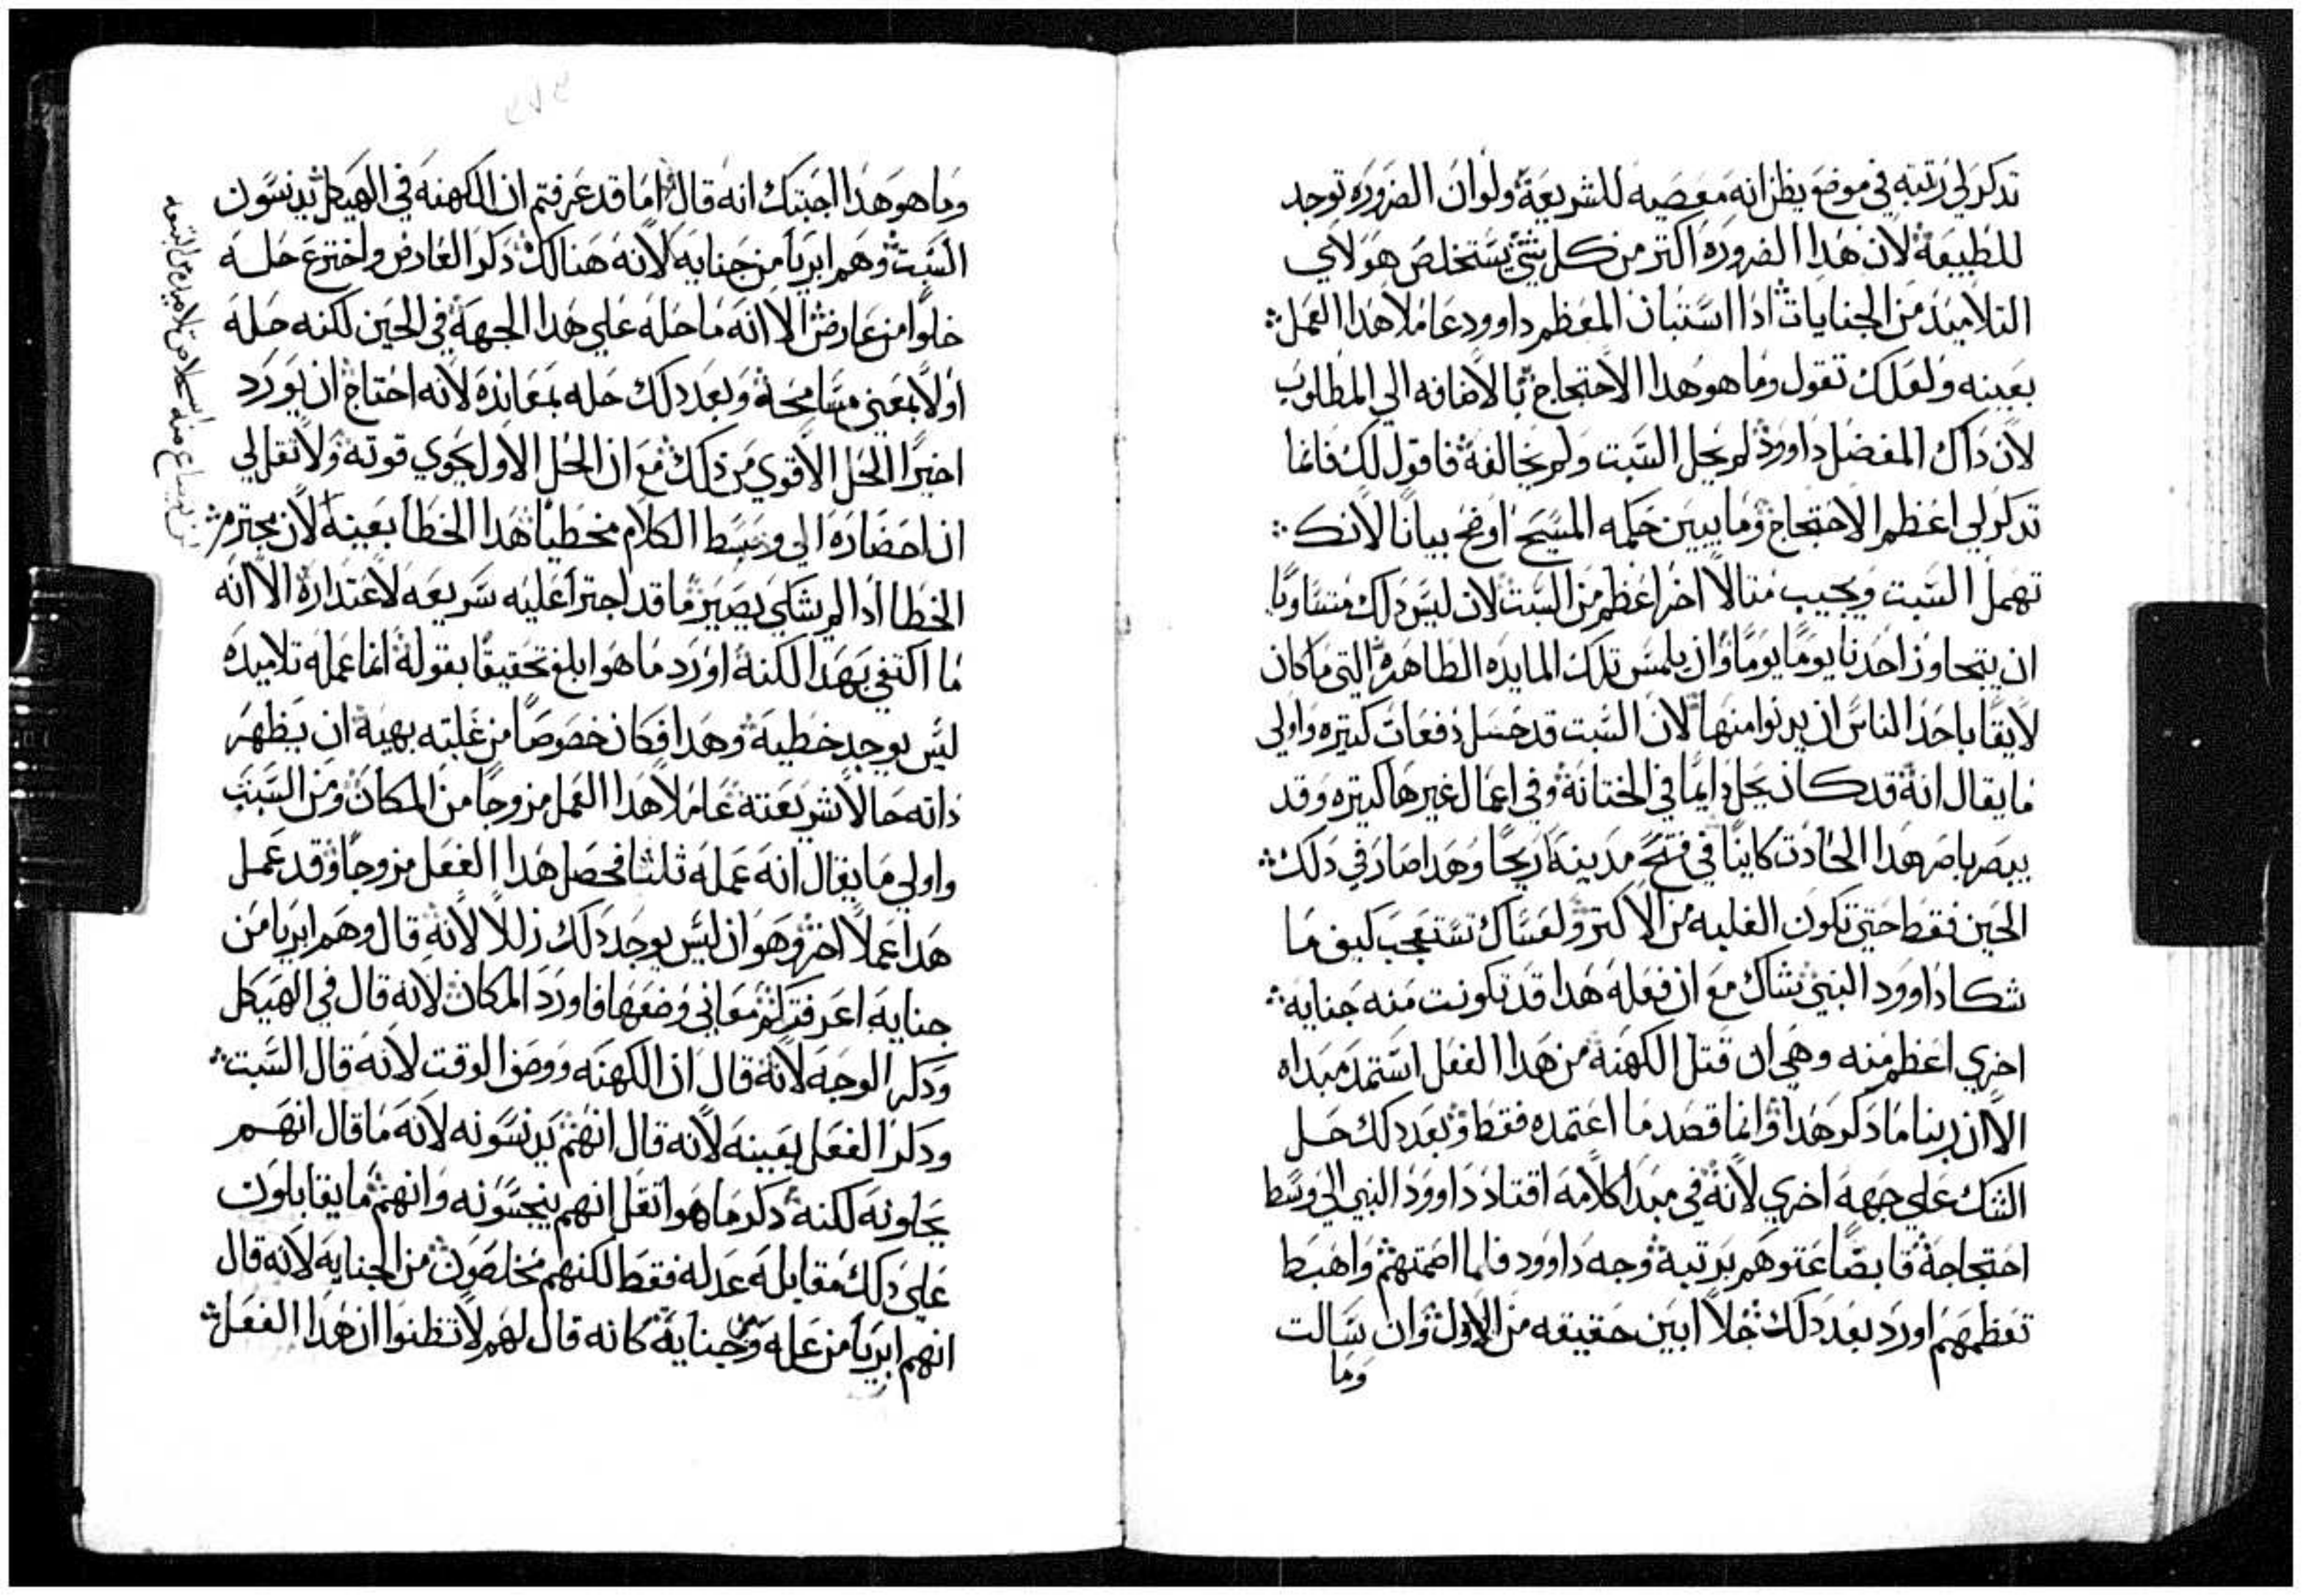 تدكر لي رتبته في موضع يظن انه معصيه للشريعة ولو ان الضروره توجد
للطبيعة لان هدا الضروره اكتر من كل شي يستخلص هولاي
التلاميد من الجنايات ادا استبان المعظم داوود عاملا هدا العمل
بعينه ولعلك تقول وما هو هدا الاحتجاج بالاضافه الي المطلوب
لان داك المفضل داوود لم يحل السبت ولم يخالفة فاقول لك فانما
تدكر لي اعظم الاحتجاج وما يبين حكمه المسيح اوضح بيانا لانك
تهمل السبت ويجيب متالا اخر اعظم من السبت لان ليس دلك متساويا
ان يتجاوز احدنا يوما يوما وان يلمس تلك المايده الطاهره التي ما كان
لايقا باحد الناس ان يدنوا منها لان السبت قد حسل دفعات كتيره واولي
ما يقال انه قد كان يحل دايما في الختانة وفي اعمال غيرها كتيره وقد
يبصر باصر هدا الحادت كاينا في فتح مدينة اريحا وهدا صار في دلك
الحين فقط حتي تكون الغلبه من الاكتر ولعساك تستعجب كيف ما
شكا داوود النبي شاك مع ان فعله هدا قد تكونت منه جنايه
اخري اعظم منه وهي ان قتل الكهنة من هدا الفعل استمد مبداه
الا ان ربنا ما دكر هدا وانما قصد ما اعتمده فقط وبعد دلك حل
الشك علي جهة اخري لانه في مبدا كلامه اقتاد داوود النبي الي وسط
احتجاجة قابضا عتوهم برتبة وجه داوود فلما اصمتهم واهبط
تعظمهم اورد بعد دلك حلا ابين حقيقه من الاول وان سالت
وما
وما هو هدا اجبتك انه قال اما قد عرفتم ان الكهنه في الهيكل يدنسون
السبت وهم ابريا من جنايه لانه هنالك دكر العارض واخترع حله
خلوا من عارض الا انه ما حله علي هدا الجهة في الحين لكنه حله
اولا بمعني مسامحة وبعد دلك حله بمعانده لانه احتاج ان يورد
اخيرا الحل الاقوي من دلك مع ان الحل الاول يحوي قوته ولا تقل لي
ان احضاره الي وسط الكلام مخطيا هدا الخطا بعينه لان مجترم
الخطا ادا لم يشكي يصير ما قد اجترا عليه شريعه لاعتداره الا انه
ما اكتفي بهدا لكنه اورد ما هو ابلغ تحقيقا بقوله انما عمله تلاميده
ليس يوجد خطية وهدا فكان خصوصا من غلبته بهية ان يظهر
داته حالا شريعته عاملا هدا العمل مزوجا من المكان ومن السبت
واولي ما يقال انه عمله تلتا فحصل هدا الفعل مزوجا وقد عمل
هدا عملا اخر وهو ان ليس يوجد دلك زللا لانه قال وهم ابريا من
جنايه اعرفتم كم معاني وضعها فاورد المكان لانه قال في الهيكل
ودكر الوجه لانه قال ان الكهنه ووصف الوقت لانه قال السبت
ودكر الفعل بعينه لانه قال انهم يدنسونه لانه ما قال انهم
يحلونه لكنه دكر ما هو اتقل انهم ينجسونه وانهم ما يقابلون
علي دلك مقابلة عدله فقط لكنهم مخلصون من الجنايه لانه قال
انهم ابريا من عله ومن جناية كانه قال لهم لا تظنوا ان هدا الفعل